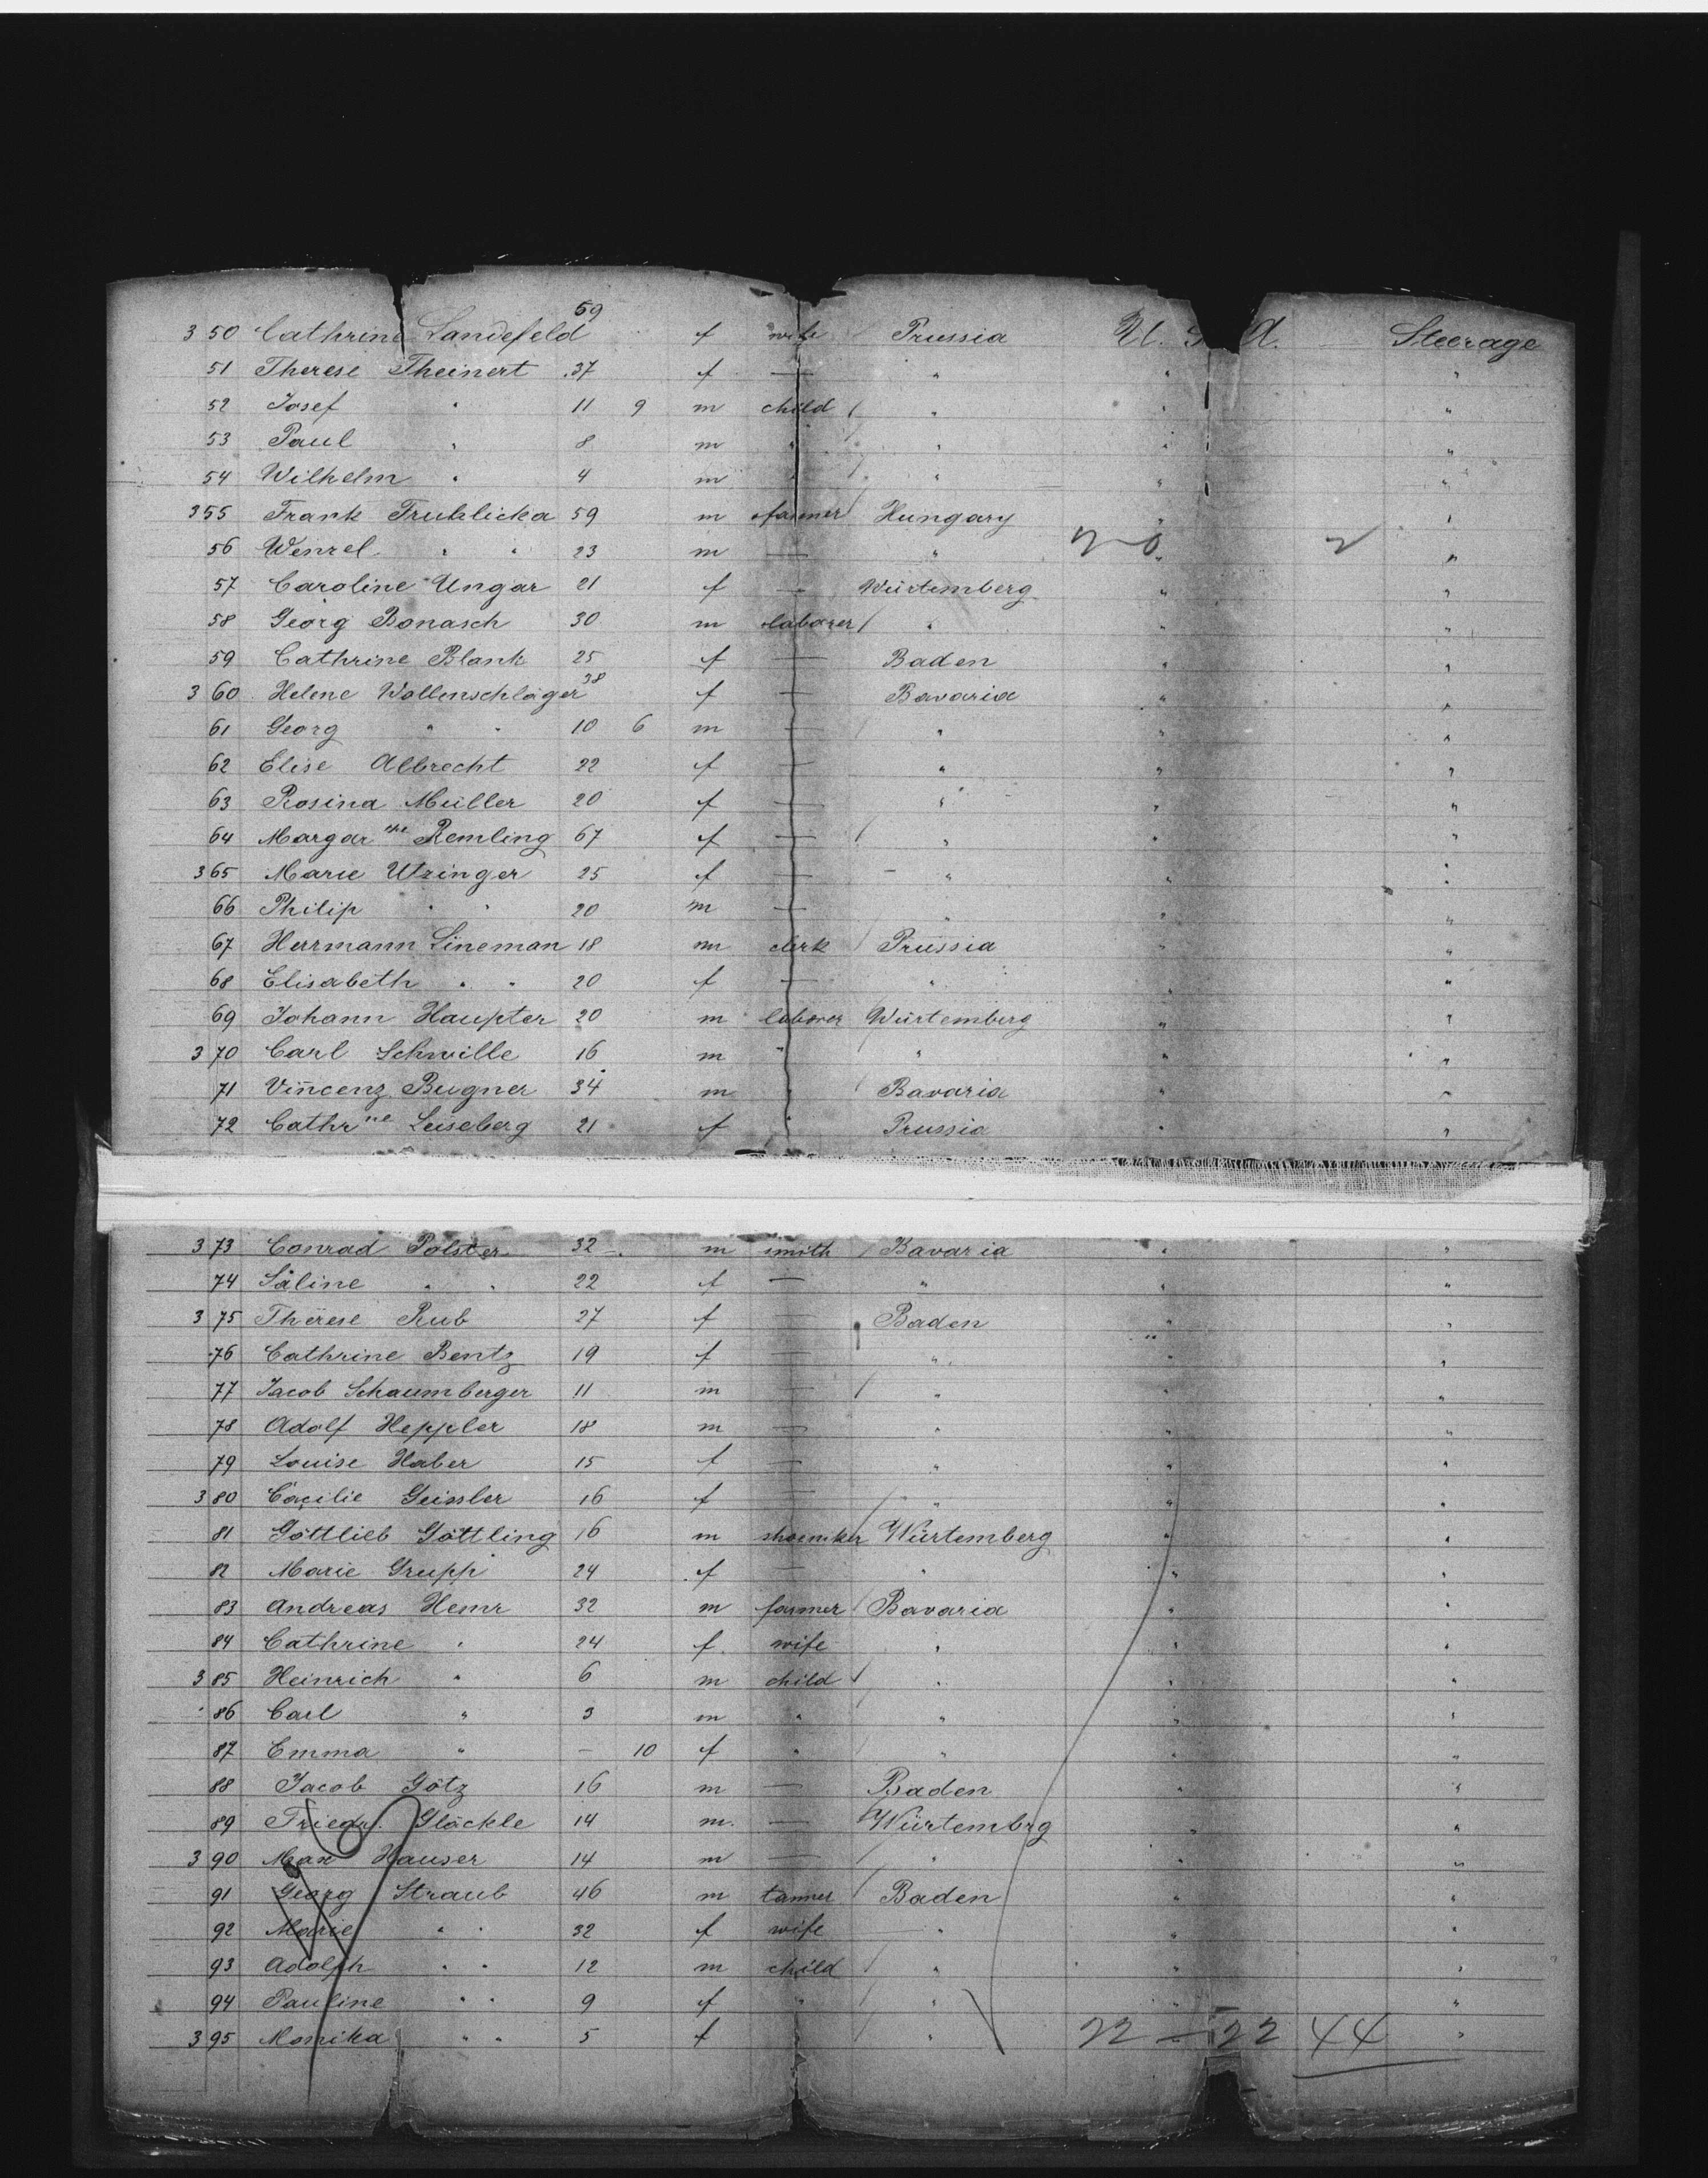 3 50 Cathrine Landefeld 59 f wife Prussia U. S. A. Steerage
51 Therese Theinert 37 f — " " "
52 Josef " 11 9 m child " " "
53 Paul " 8 m " " " "
54 Wilhelm " 4 m " " " "
355 Frank Truhlicka 59 m farmer Hungary " "
56 Wenzel " " 23 m — " 2-0 " 2 "
57 Caroline Ungar 21 f — Würtemberg " "
58 Georg Bonasch 30 m laborer " " "
59 Cathrine Blank 25 f — Baden " "
3 60 Helene Wollenschläger 38 f — Bavaria " "
61 Georg " " 10 6 m — " " "
62 Elise Albrecht 22 f — " " "
63 Rosina Müller 20 f — " " "
64 Margar the Remling 67 f — " " "
365 Marie Utzinger 25 f — " " "
66 Philip " " 20 m — " " "
67 Herrmann Lineman 18 m clerk Prussia " "
68 Elisabeth " " 20 f — " " "
69 Johann Haupter 20 m laborer Würtemberg " "
3 70 Carl Schwille 16 m " " " "
71 Vincenz Bugner 34 m " Bavaria " "
72 Cathr ne Leiseberg 21 f " Prussia " "
3 73 Conrad Polster 32 m smith Bavaria " "
74 Säline " " 22 f — " " "
3 75 Therese Rub 27 f — Baden " "
76 Cathrine Bentz 19 f — " " "
77 Jacob Schaumberger 11 m — " " "
78 Adolf Heppler 18 m — " " "
79 Louise Haber 15 f — " " "
3 80 Cäcilie Geissler 16 f — " " "
81 Gottlieb Göttling 16 m shoemker Würtemberg " "
82 Marie Grupp 24 f — " " "
83 Andreas Hemr 32 m farmer Bavaria " "
84 Cathrine " 24 f wife " " "
3 85 Heinrich " 6 m child " " "
86 Carl " 3 m " " " "
87 Emma " — 10 f " " " "
88 Jacob Götz 16 m — Baden " "
89 Friedr. Glöckle 14 m. — Würtembrg " "
3 90 Max Hauser 14 m — " " "
91 Georg Straub 46 m tanner Baden " "
92 Marie " " 32 f wife " " "
93 Adolph " " 12 m child " " "
94 Pauline " " 9 f " " " "
3 95 Monika " " 5 f " " 22 — 22 44 "